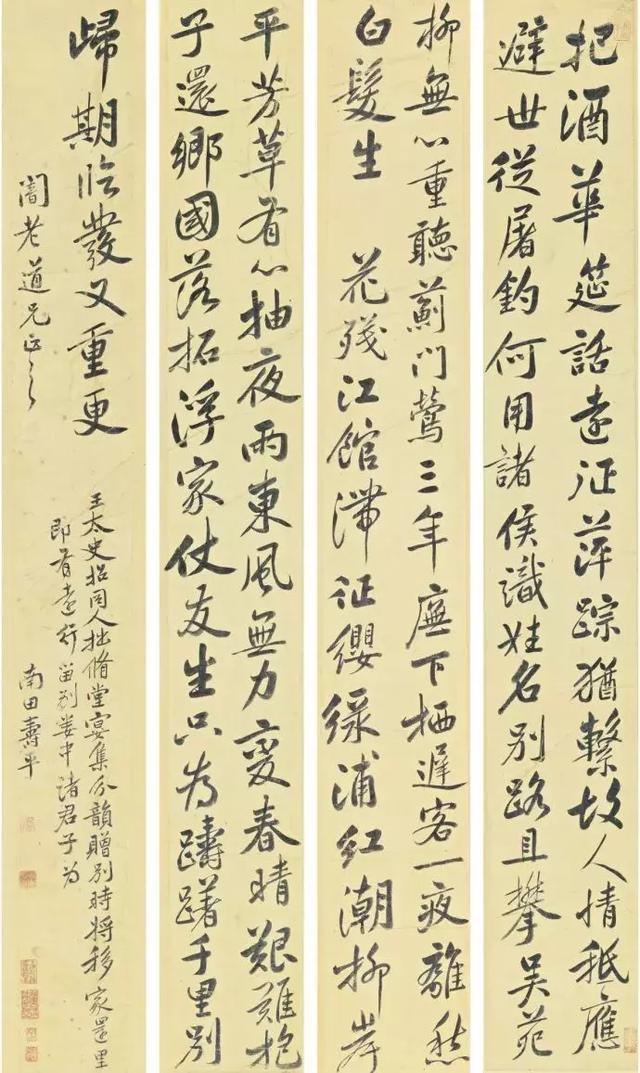 把酒華筵話遠征萍踪猶繫故人情秪應
避世從屠釣何用諸侯識姓名別路且攀吳苑
柳無心重聽薊門鶯三年廡下栖遲客一夜離愁
白髮生 花殘江館滯征纓綠浦紅潮柳岸
平芳草有心抽夜雨東風無力變春晴艱難抱
子還鄉國落拓浮家仗友生只為躊躇千里別
歸期臨發又重更
闇老道兄正之
王太史招同人拙脩堂宴集分韻贈別時將移家還里
即有遠行留別婁中諸君子為
南田壽平